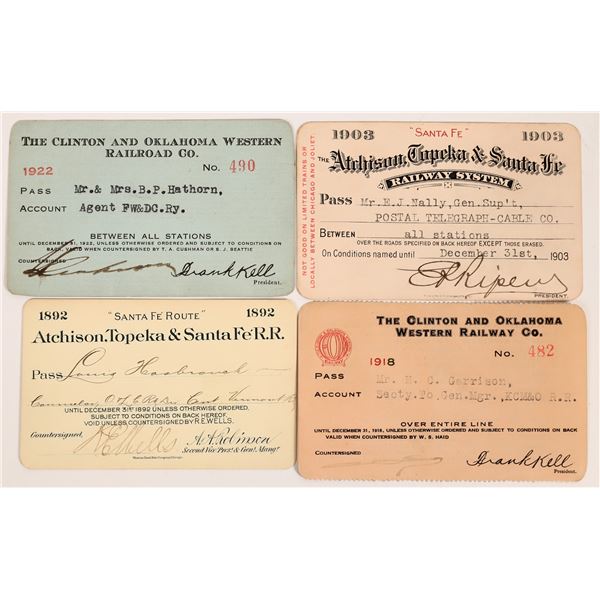 THE CLINTON AND OKLAHOMA WESTERN
RAILROAD CO.
1922
No. 490
PASS Mr.& Mrs.B.P.Hathorn,
ACCOUNT Agent FW&DC.Ry.
BETWEEN ALL STATIONS
UNTIL DECEMBER 31, 1922, UNLESS OTHERWISE ORDERED AND SUBJECT TO CONDITIONS ON
BACK, VALID WHEN COUNTERSIGNED BY T. A. CUSHMAN OR S. J. BEATTIE
COUNTERSIGNED
Frank Kell
President.
NOT GOOD ON LIMITED TRAINS OR
LOCALLY BETWEEN CHICAGO AND JOLIET.
1903 "SANTA FE" 1903
THE Atchison, Topeka & Santa Fe
RAILWAY SYSTEM
Pass Mr.E.J.Nally,Gen.Sup't,
POSTAL TELEGRAPH-CABLE CO.
BETWEEN all stations
OVER THE ROADS SPECIFIED ON BACK HEREOF EXCEPT THOSE ERASED.
On Conditions named until December 31st, 1903
E P Ripley
PRESIDENT.
1892 "SANTA FE ROUTE" 1892
Atchison, Topeka & Santa Fe R.R.
Pass Louis Hasbrouck
UNTIL DECEMBER 31st 1892 UNLESS OTHERWISE ORDERED,
SUBJECT TO CONDITIONS ON BACK HEREOF.
VOID UNLESS COUNTERSIGNED BY R.E.WELLS.
Countersigned,
R E Wells
A.A. Robinson
Second Vice Prest. & Genl. Mangr.
THE CLINTON AND OKLAHOMA
WESTERN RAILWAY CO.
1918
No. 482
PASS Mr. H. C. Garrison,
ACCOUNT Secty.To.Gen.Mgr.,KCM&O R.R.
OVER ENTIRE LINE
UNTIL DECEMBER 31, 1918, UNLESS OTHERWISE ORDERED AND SUBJECT TO CONDITIONS ON BACK
VALID WHEN COUNTERSIGNED BY W. S. HAID
COUNTERSIGNED
Frank Kell
President.